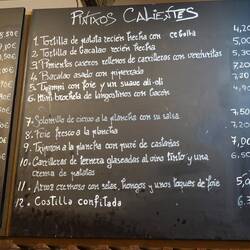 PINTXOS CALIENTES
1. Tortilla de patata recién hecha con cebolla
2. Tortilla de Bacalao recién hecha
3. Pimientos caseros rellenos de carrilleras con verduritas
4. Bacalao asado con piperrada
5. Txanpi con foie y un suave ali-oli
6. Mini brocheta de langostinos con bacon
7. Solomillo de cerdo a la plancha con su salsa
8. Foie fresco a la plancha
9. a la plancha con puré de castañas
10. Carrilleras de ternera glaseadas al vino tinto y una
crema de patatas
11. Arroz cremoso con setas, hongos y unos toques de foie
12. Costilla confitada